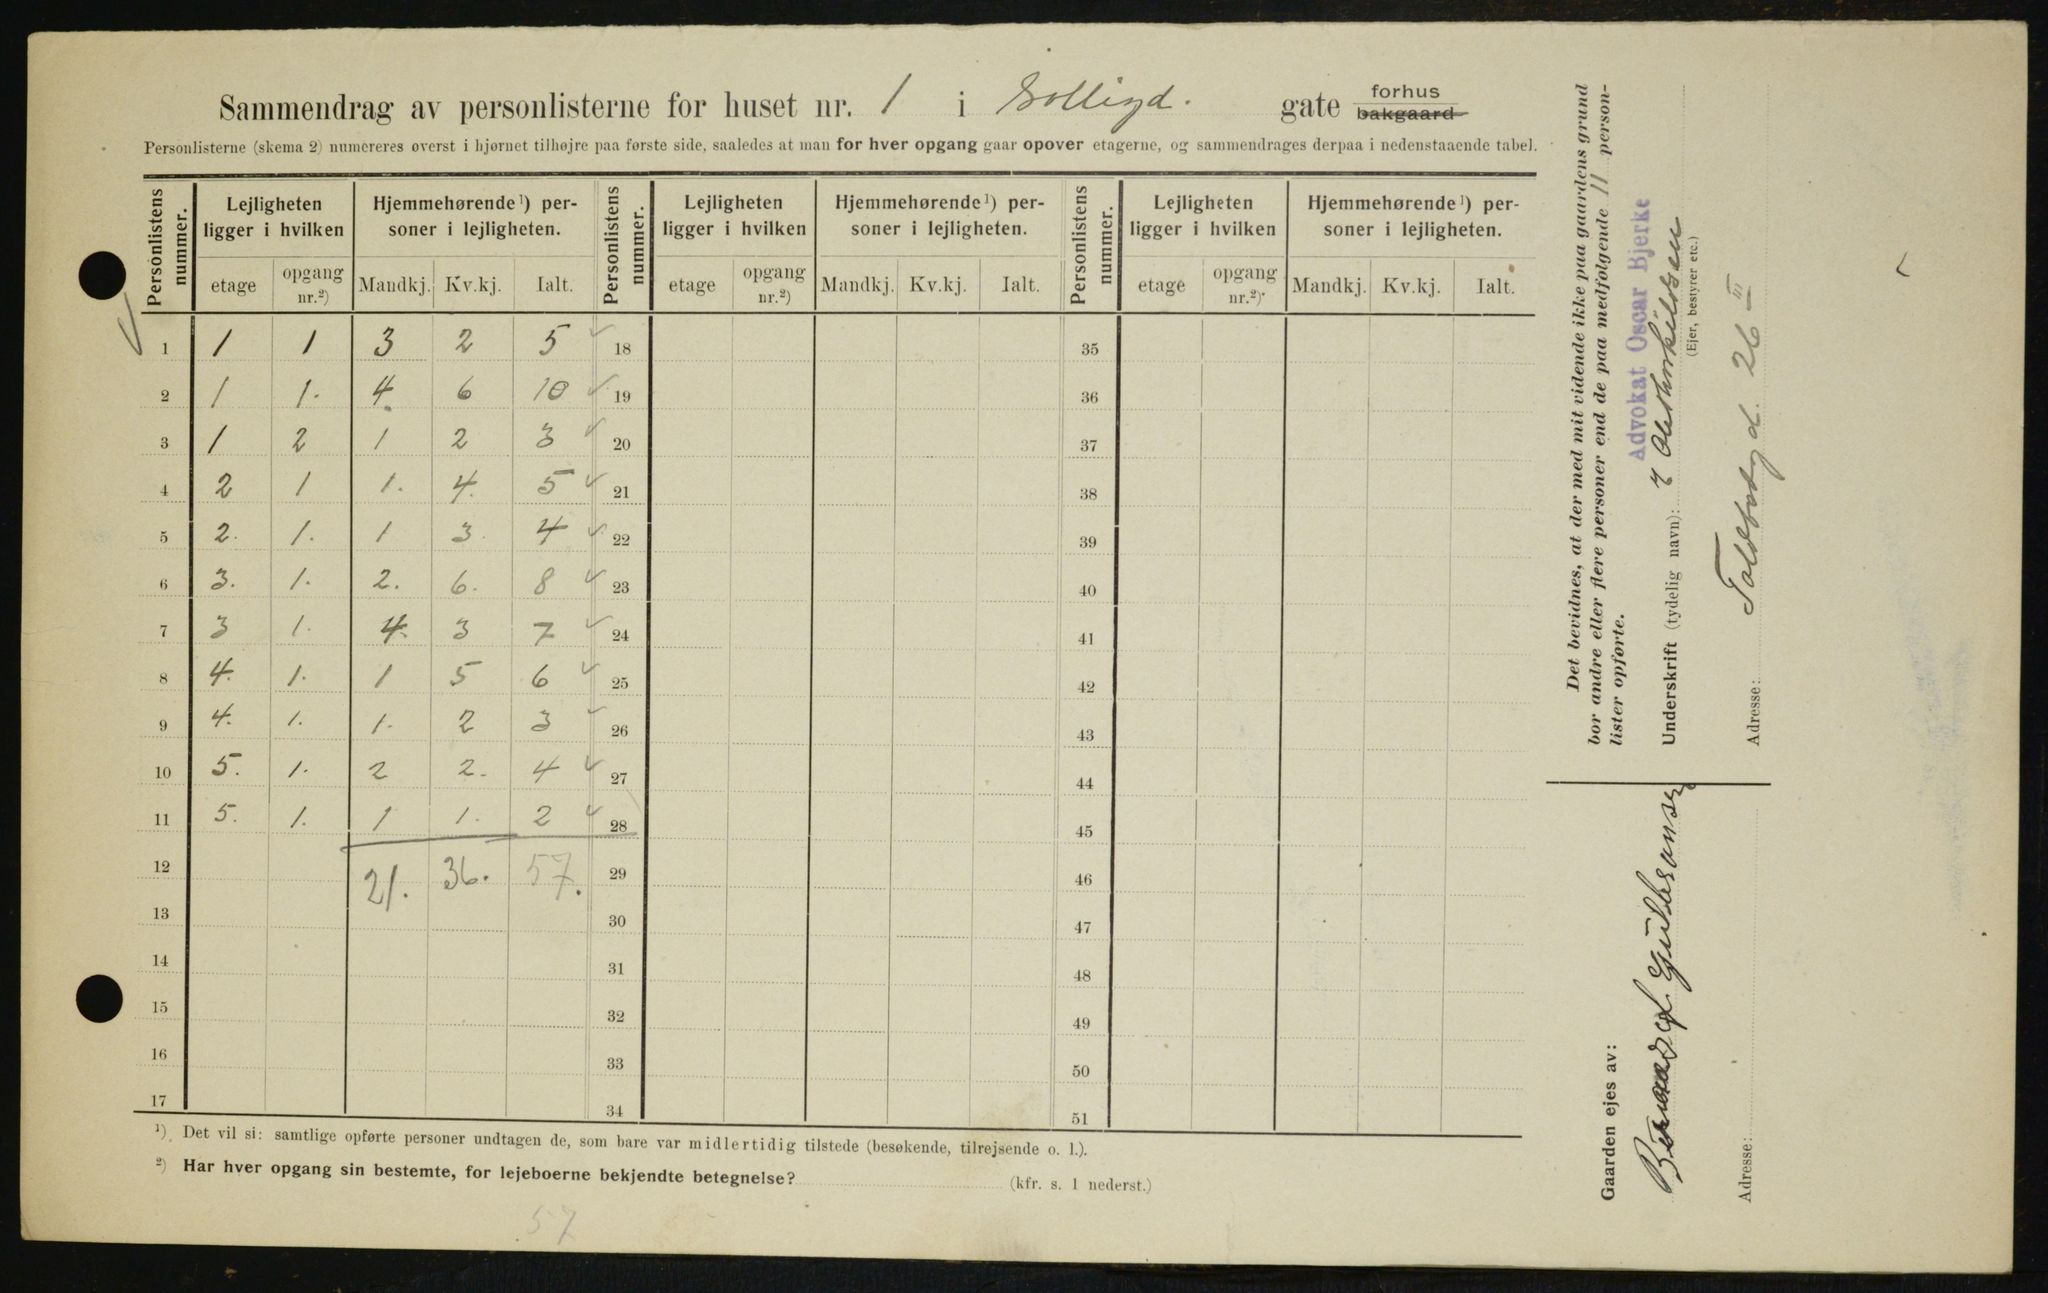 Sammendrag av personlisterne for huset nr. 1 i Solligd. gate forhus
bakgaard
Personlisterne (skema 2) numereres øverst i hjørnet tilhøjre paa første side, saaledes at man for hver opgang gaar opover etagerne, og sammendrages derpaa i nedenstaaende tabel.
Personlistens nummer. Lejligheten ligger i hvilken Hjemmehørende¹) personer i lejligheten. Personlistens nummer. Lejligheten ligger i hvilken Hjemmehørende¹) personer i lejligheten. Personlistens nummer. Lejligheten ligger i hvilken Hjemmehørende¹) personer i lejligheten.
etage opgang nr.²) Mandkj. Kv.kj. Ialt. etage opgang nr.²) Mandkj. Kv.kj. Ialt. etage opgang nr.²) Mandkj. Kv.kj. Ialt.
1 1 1 3 2 5 ✓ 18 35
2 1 1. 4. 6 10 ✓ 19 36
3 1 2 1 2 3 ✓ 20 37
4 2 1 1. 4. 5 ✓ 21 38
5 2. 1. 1 3. 4 ✓ 22 39
6 3. 1. 2. 6. 8 ✓ 23 40
7 3 1. 4. 3 7 ✓ 24 41
8 4. 1. 1 5 6 ✓ 25 42
9 4. 1. 1. 2 3 ✓ 26 43
10 5. 1. 2 2. 4 ✓ 27 44
11 5. 1. 1 1. 2 ✓ 28 45
12 21. 36. 57. 29 46
13 30 47
14 31 48
15 32 49
16 33 50
17 34 51
¹) Det vil si: samtlige opførte personer undtagen de, som bare var midlertidig tilstede (besøkende, tilrejsende o. l.).
²) Har hver opgang sin bestemte, for lejeboerne bekjendte betegnelse? (kfr. s. 1 nederst.)
57
Det bevidnes, at der med mit vidende ikke paa gaardens grund
bor andre eller flere personer end de paa medfølgende 11 person-
lister opførte.
Advokat Oscar Bjerke
Underskrift (tydelig navn):
(Ejer, bestyrer etc.)
Adresse: Toldbodgd. 26 III
Gaarden ejes av:
Gulbransen
Adresse: